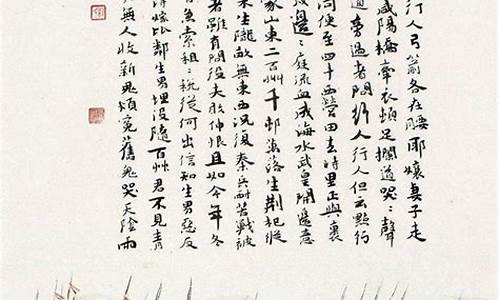 行人弓箭各在腰耶孃妻子走
咸陽橋牽衣頓足攔道哭〻聲
道旁過者問行人行人但云點行
河便至四十西營田去時里正與裹
戍邊〻庭流血成海水武皇開邊意
家山東二百州千邨萬落生荆杞縱
禾生隴畝無東西況復秦兵耐苦戰被
者雖有問役夫敢伸恨且如今年冬
急索租〻稅從何出信知生男惡反
得嫁比鄰生男埋沒隨百艸君不見青
無人收新鬼煩冤舊鬼哭天陰雨